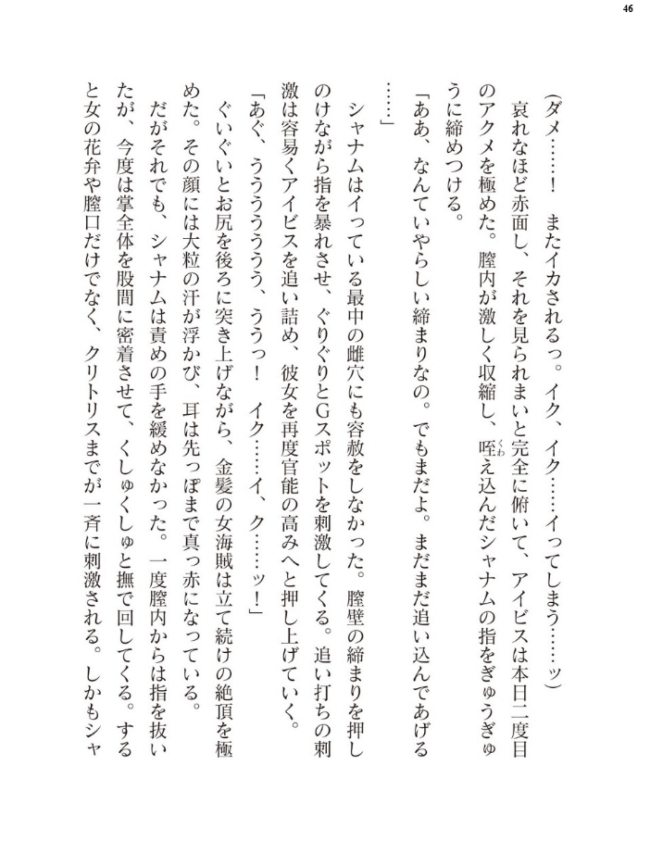 46
(ダメ……！　またイカされるっ。イク、イク……イってしまう……ッ)
　哀れなほど赤面し、それを見られまいと完全に俯いて、アイビスは本日二度目
のアクメを極めた。膣内が激しく収縮し、咥え込んだシャナムの指をぎゅうぎゅ
くわ
うに締めつける。
「ああ、なんていやらしい締まりなの。でもまだよ。まだまだ追い込んであげる
……」
　シャナムはイっている最中の雌穴にも容赦をしなかった。膣壁の締まりを押し
のけながら指を暴れさせ、ぐりぐりとGスポットを刺激してくる。追い打ちの刺
激は容易くアイビスを追い詰め、彼女を再度官能の高みへと押し上げていく。
「あぐ、うううううう、ううっ！　イク……イ、ク……ッ！」
　ぐいぐいとお尻を後ろに突き上げながら、金髪の女海賊は立て続けの絶頂を極
めた。その顔には大粒の汗が浮かび、耳は先っぽまで真っ赤になっている。
　だがそれでも、シャナムは責めの手を緩めなかった。一度膣内からは指を抜い
たが、今度は掌全体を股間に密着させて、くしゅくしゅと撫で回してくる。する
と女の花弁や膣口だけでなく、クリトリスまでが一斉に刺激される。しかもシャ